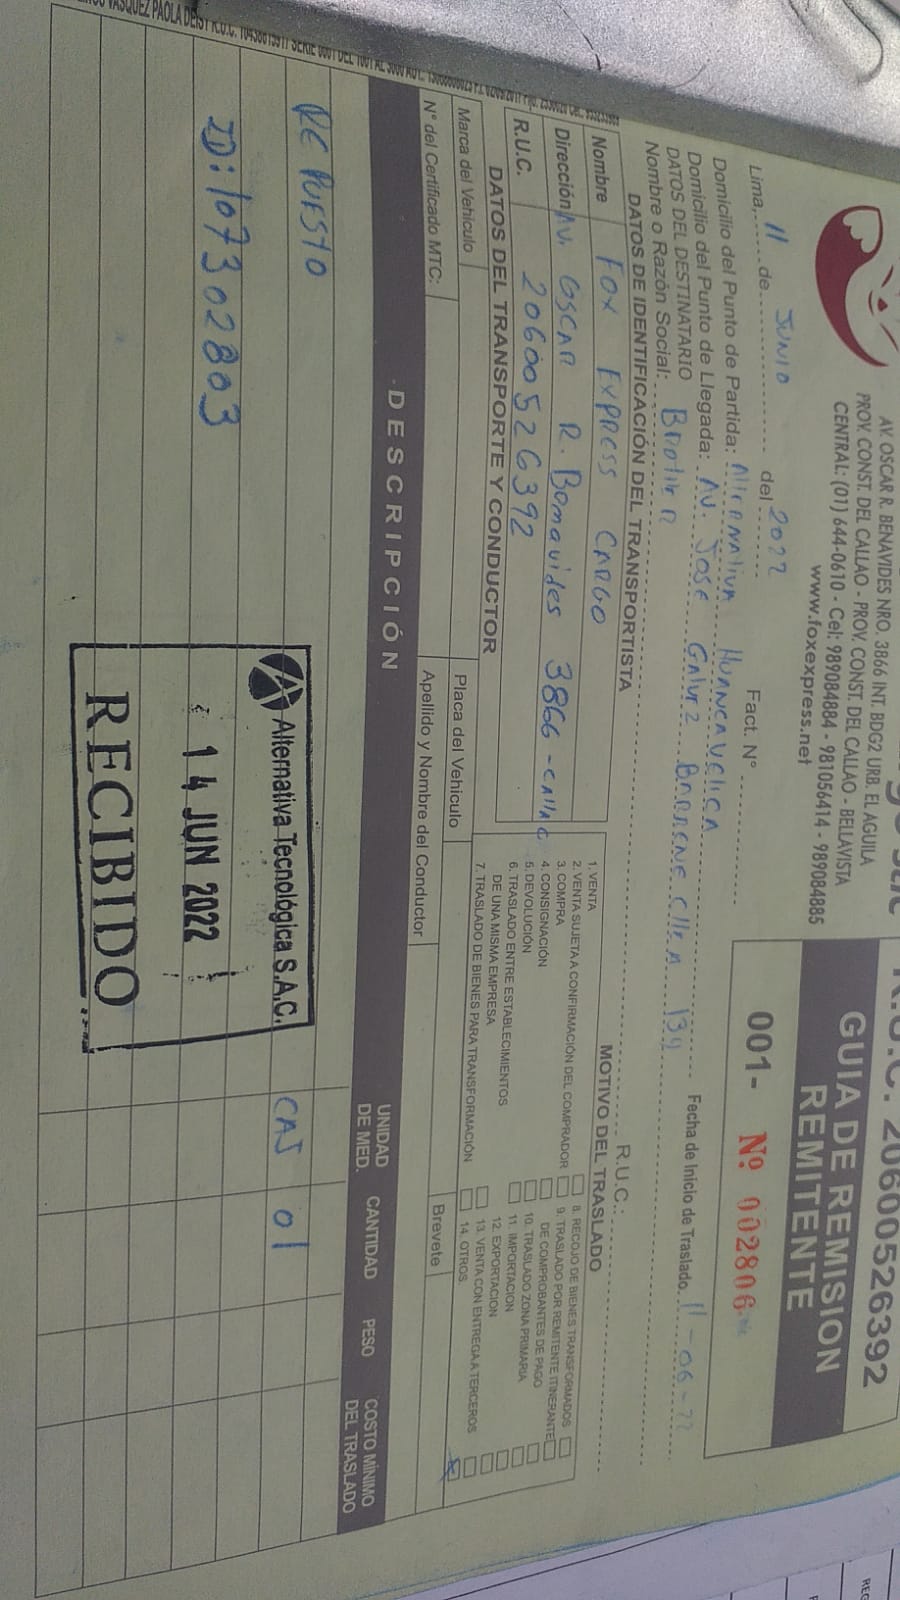 AV. OSCAR R. BENAVIDES NRO. 3866 INT. BDG2 URB. EL AGUILA
PROV. CONST. DEL CALLAO - PROV. CONST. DEL CALLAO - BELLAVISTA
CENTRAL: (01) 644-0610 - Cel: 989084884 - 981056414 - 989084885
www.foxexpress.net
R.U.C. 20600526392
GUIA DE REMISION
REMITENTE
001- Nº 002806
Lima, 11 de JUNIO del 2022 Fact. N°
Domicilio del Punto de Partida: HUANCAVELICA
Domicilio del Punto de Llegada: AV. JOSE GALVEZ BARRENECHEA Fecha de Inicio de Traslado. 11-06-22
DATOS DEL DESTINATARIO
Nombre o Razón Social: R.U.C.:
DATOS DE IDENTIFICACIÓN DEL TRANSPORTISTA
Nombre FOX EXPRESS CARGO
Dirección AV. OSCAR R. Benavides 3866 - Callao
R.U.C. 20600526392
MOTIVO DEL TRASLADO
1. VENTA
2. VENTA SUJETA A CONFIRMACIÓN DEL COMPRADOR
3. COMPRA
4. CONSIGNACIÓN
5. DEVOLUCIÓN
6. TRASLADO ENTRE ESTABLECIMIENTOS
DE UNA MISMA EMPRESA
7. TRASLADO DE BIENES PARA TRANSFORMACIÓN
8. RECOJO DE BIENES TRANSFORMADOS
9. TRASLADO POR REMITENTE ITINERANTE
DE COMPROBANTES DE PAGO
10. TRASLADO ZONA PRIMARIA
11. IMPORTACION
12. EXPORTACION
13. VENTA CON ENTREGA A TERCEROS
14. OTROS
DATOS DEL TRANSPORTE Y CONDUCTOR
Marca del Vehículo Placa del Vehículo
N° del Certificado MTC: Apellido y Nombre del Conductor Brevete
DESCRIPCIÓN UNIDAD DE MED. CANTIDAD PESO COSTO MÍNIMO DEL TRASLADO
REPUESTO
CAJ 01
ID: 107302803
Alternativa Tecnológica S.A.C.
14 JUN 2022
RECIBIDO
VASQUEZ PAOLA